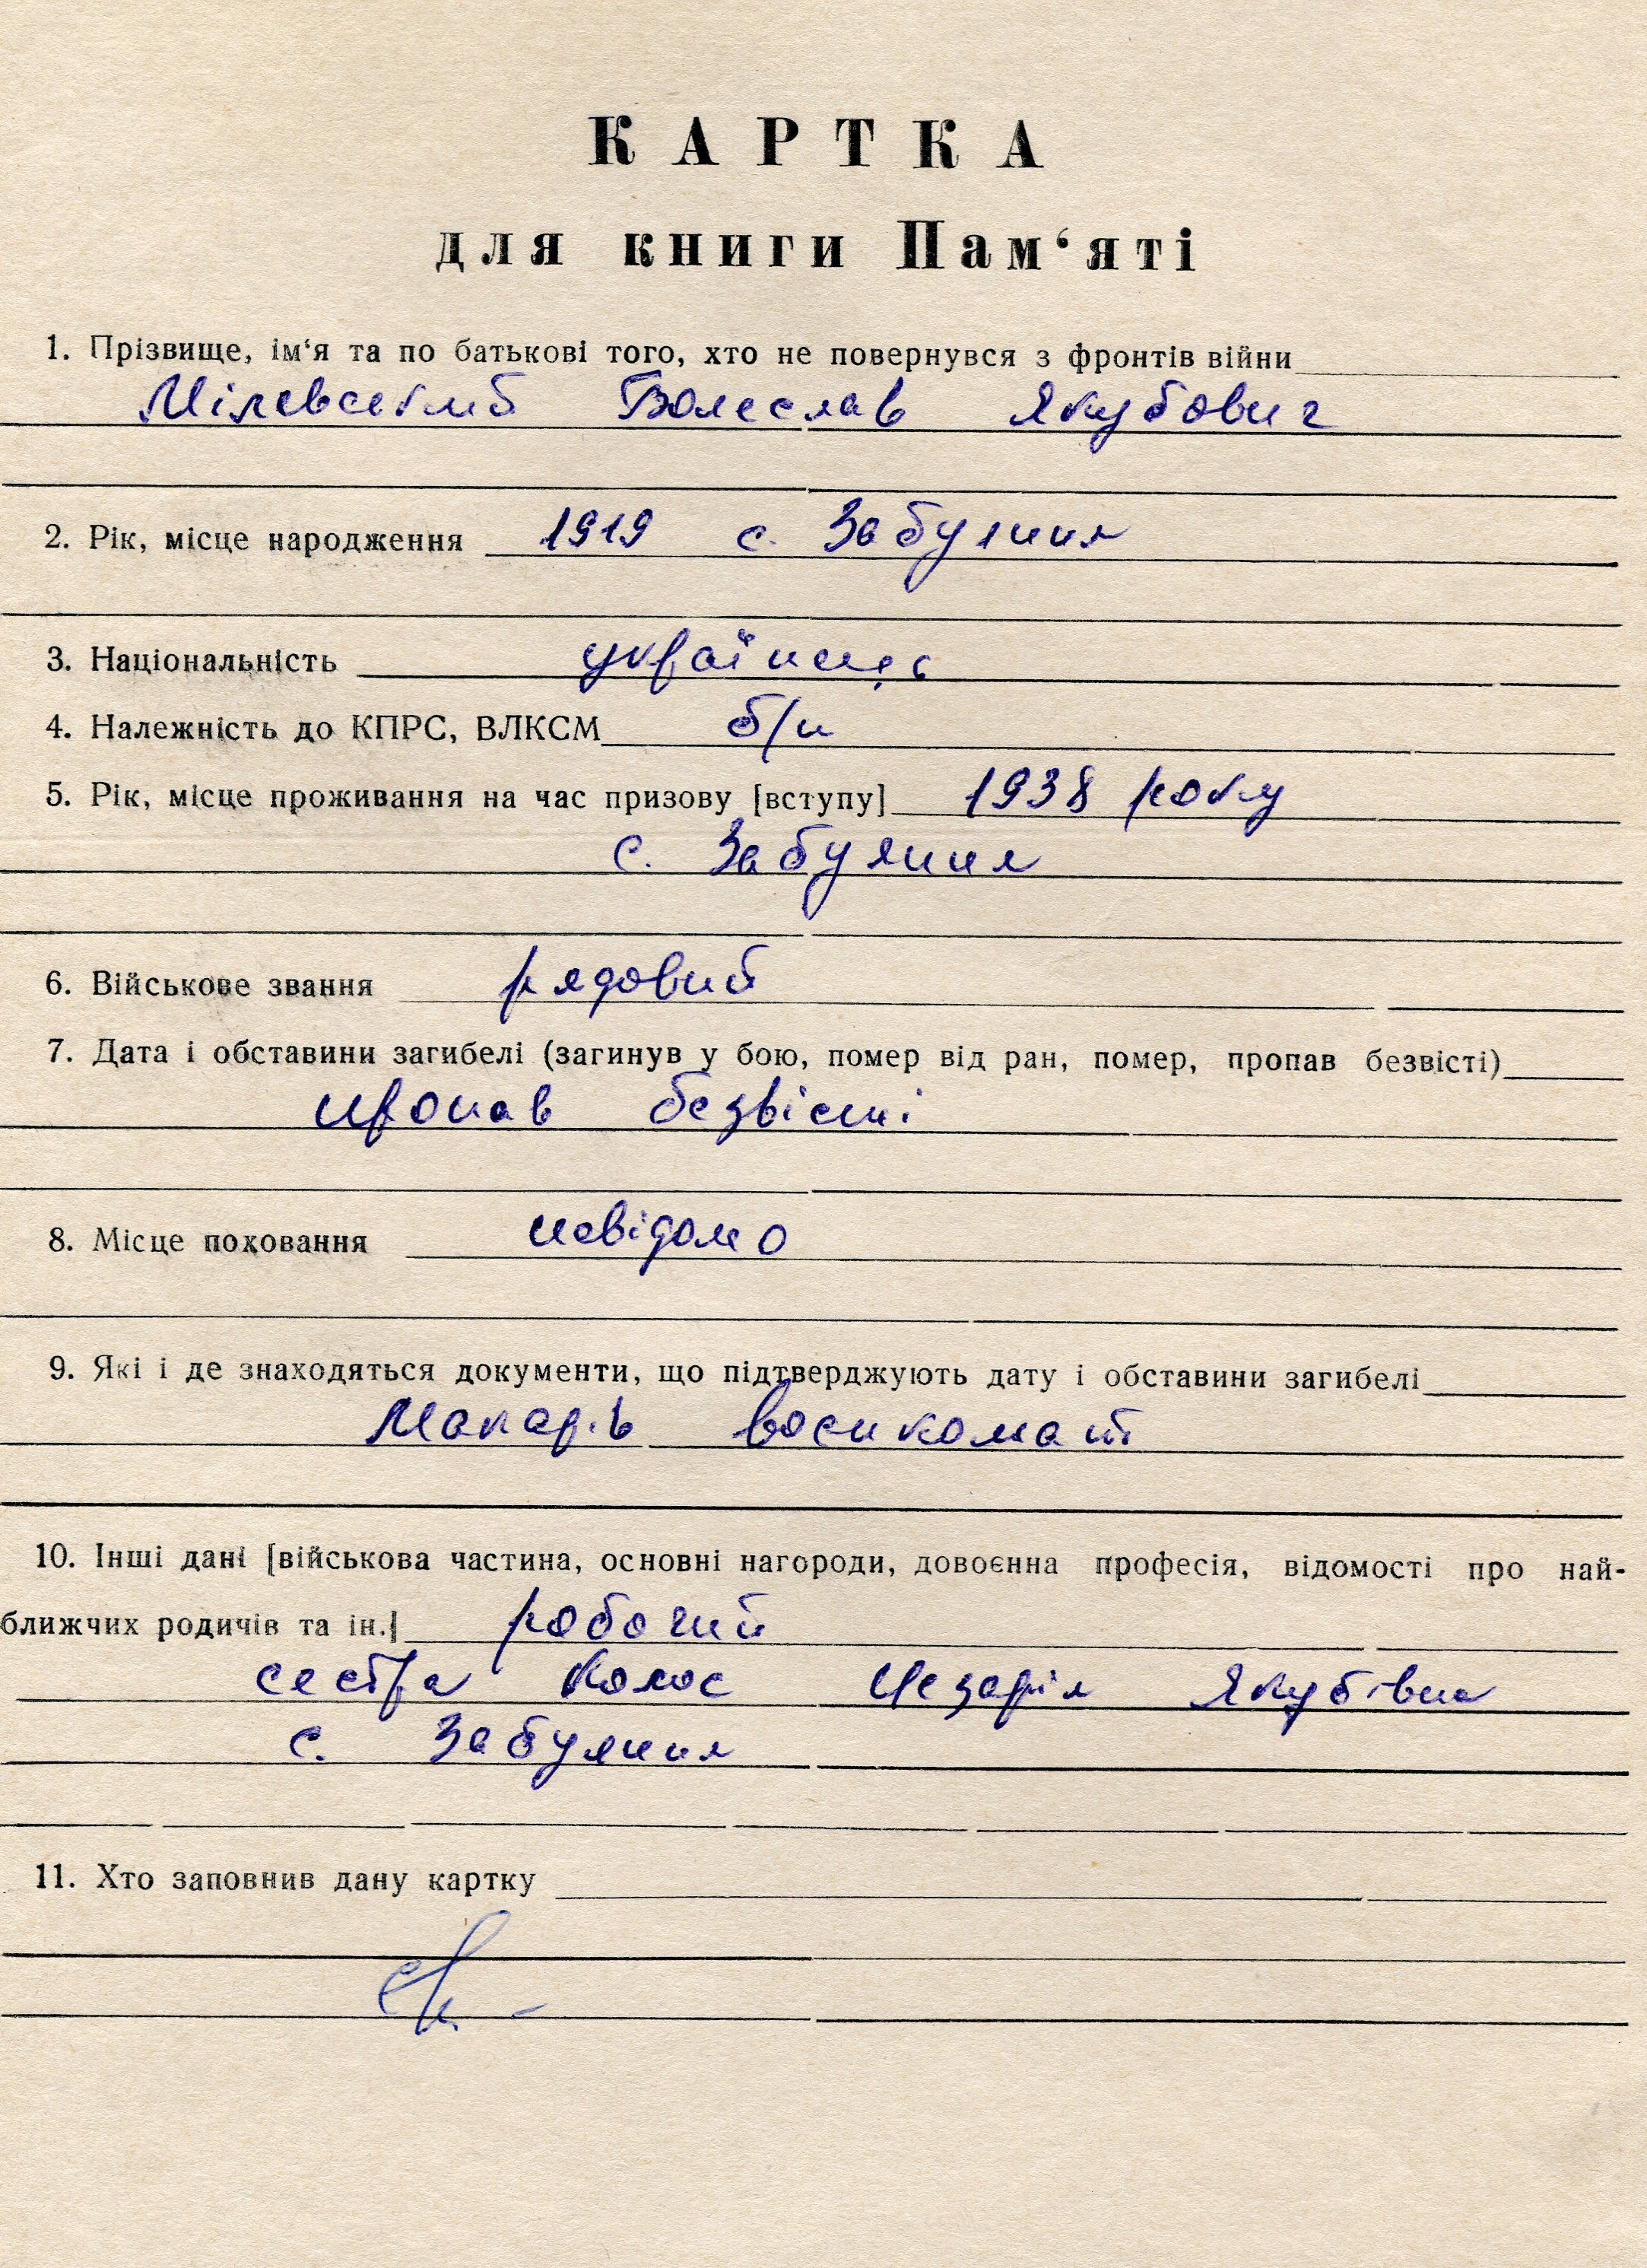 КАРТКА
для книги Пам‘яті
1. Прізвище, ім‘я та по батькові того, хто не повернувся з фронтів війни
Мілевський Болеслав Якубович
2. Рік, місце народження 1919 с. Забуяння
3. Національність українець
4. Належність до КПРС, ВЛКСМ б/п
5. Рік, місце проживання на час призову [вступу] 1938 року
с. Забуяння
6. Військове звання рядовий
7. Дата і обставини загибелі (загинув у бою, помер від ран, помер, пропав безвісті)
пропав безвісті
8. Місце поховання невідомо
9. Які і де знаходяться документи, що підтверджують дату і обставини загибелі
Макарів воєнкомат
10. Інші дані [військова частина, основні нагороди, довоєнна професія, відомості про най-
ближчих родичів та ін.] робочий
сестра Колос Цезарія Якубівна
с. Забуяння
11. Хто заповнив дану картку